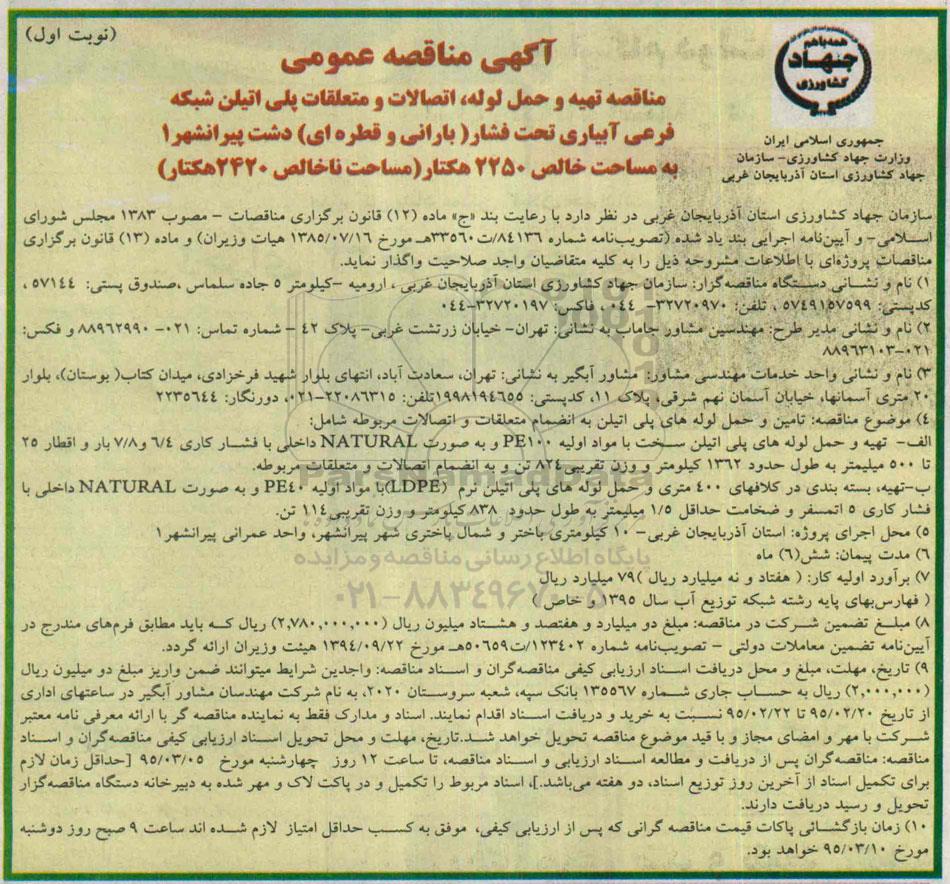 (نوبت اول)
همه با هم
جهاد
کشاورزی
جمهوری اسلامی ایران
وزارت جهاد کشاورزی- سازمان
جهاد کشاورزی استان آذربایجان غربی
آگهی مناقصه عمومی
مناقصه تهیه و حمل لوله، اتصالات و متعلقات پلی اتیلن شبکه
فرعی آبیاری تحت فشار( بارانی و قطره ای) دشت پیرانشهر۱
به مساحت خالص ۲۲۵۰ هکتار(مساحت ناخالص ۲۴۲۰هکتار)
سازمان جهاد کشاورزی استان آذربایجان غربی در نظر دارد با رعایت بند «ج» ماده (۱۲) قانون برگزاری مناقصات – مصوب ۱۳۸۳ مجلس شورای
اسلامی- و آیین‌نامه اجرایی بند یاد شده (تصویب‌نامه شماره ۸۴۱۳۶/ت۳۳۵۶۰هـ مورخ ۱۳۸۵/۰۷/۱۶ هیات وزیران) و ماده (۱۳) قانون برگزاری
مناقصات پروژه‌ای با اطلاعات مشروحه ذیل را به کلیه متقاضیان واجد صلاحیت واگذار نماید.
۱) نام و نشانی دستگاه مناقصه‌گزار: سازمان جهاد کشاورزی استان آذربایجان غربی ، ارومیه –کیلومتر ۵ جاده سلماس ،صندوق پستی: ۵۷۱۴۴ ،
کدپستی: ۵۷۴۹۱۵۷۵۹۹ ، تلفن: ۳۲۷۲۰۹۷۰– ۰۴۴ فاکس: ۳۲۷۲۰۱۹۷-۰۴۴
۲) نام و نشانی مدیر طرح: مهندسین مشاور جاماب به نشانی: تهران- خیابان زرتشت غربی- پلاک ۴۲ – شماره تماس: ۰۲۱- ۸۸۹۶۲۹۹۰ و فکس:
۰۲۱-۸۸۹۶۳۱۰۳
۳) نام و نشانی واحد خدمات مهندسی مشاور: مشاور آبگیر به نشانی: تهران، سعادت آباد، انتهای بلوار شهید فرخزادی، میدان کتاب( بوستان)، بلوار
۲۰ متری آسمانها، خیابان آسمان نهم شرقی، پلاک ۱۱، کدپستی: ۱۹۹۸۱۹۴۶۵۵تلفن: ۲۲۰۸۶۳۱۵-۰۲۱، دورنگار: ۲۲۳۵۶۴۴
۴) موضوع مناقصه: تامین و حمل لوله های پلی اتیلن به انضمام متعلقات و اتصالات مربوطه شامل:
الف- تهیه و حمل لوله های پلی اتیلن سخت با مواد اولیه PE۱۰۰ و به صورت NATURAL داخلی با فشار کاری ۶/۴ و۷/۸ بار و اقطار ۲۵
تا ۵۰۰ میلیمتر به طول حدود ۱۳۶۲ کیلومتر و وزن تقریبی۸۲۴ تن و به انضمام اتصالات و متعلقات مربوطه.
ب-تهیه، بسته بندی در کلافهای ۴۰۰ متری و حمل لوله های پلی اتیلن نرم (LDPE)با مواد اولیه PE۴۰ و به صورت NATURAL داخلی با
فشار کاری ۵ اتمسفر و ضخامت حداقل ۱/۵ میلیمتر به طول حدود ۸۳۸ کیلومتر و وزن تقریبی۱۱۴ تن.
۵) محل اجرای پروژه: استان آذربایجان غربی- ۱۰ کیلومتری باختر و شمال باختری شهر پیرانشهر، واحد عمرانی پیرانشهر۱
۶) مدت پیمان: شش(۶) ماه
پایگاه اطلاع رسانی مناقصه و مزایده
۷) برآورد اولیه کار: ( هفتاد و نه میلیارد ریال )۷۹ میلیارد ریال
۰۲۱-۸۸۳۴۹۶۷۰-۵
( فهارس‌بهای پایه رشته شبکه توزیع آب سال ۱۳۹۵ و خاص )
۸) مبلغ تضمین شرکت در مناقصه: مبلغ دو میلیارد و هفتصد و هشتاد میلیون ریال (۲,۷۸۰,۰۰۰,۰۰۰) ریال که باید مطابق فرم‌های مندرج در
آیین‌نامه تضمین معاملات دولتی – تصویب‌نامه شماره ۱۲۳۴۰۲/ت۵۰۶۵۹هـ مورخ ۱۳۹۴/۰۹/۲۲ هیئت وزیران ارائه گردد.
۹) تاریخ، مهلت، مبلغ و محل دریافت اسناد ارزیابی کیفی مناقصه‌گران و اسناد مناقصه: واجدین شرایط میتوانند ضمن واریز مبلغ دو میلیون ریال
(۲,۰۰۰,۰۰۰) ریال به حساب جاری شماره ۱۳۵۵۶۷ بانک سپه، شعبه سروستان ۲۰۲۰، به نام شرکت مهندسان مشاور آبگیر در ساعتهای اداری
از تاریخ ۹۵/۰۲/۲۰ تا ۹۵/۰۲/۲۲ نسبت به خرید و دریافت اسناد اقدام نمایند. اسناد و مدارک فقط به نماینده مناقصه گر با ارائه معرفی نامه معتبر
شرکت با مهر و امضای مجاز و با قید موضوع مناقصه تحویل خواهد شد.تاریخ، مهلت و محل تحویل اسناد ارزیابی کیفی مناقصه‌گران و اسناد
مناقصه: مناقصه‌گران پس از دریافت و مطالعه اسناد ارزیابی و اسناد مناقصه، تا ساعت ۱۲ روز چهارشنبه مورخ ۹۵/۰۳/۰۵ [حداقل زمان لازم
برای تکمیل اسناد از آخرین روز توزیع اسناد، دو هفته می‌باشد.]، اسناد مربوط را تکمیل و در پاکت لاک و مهر شده به دبیرخانه دستگاه مناقصه‌گزار
تحویل و رسید دریافت دارند.
۱۰) زمان بازگشائی پاکات قیمت مناقصه گرانی که پس از ارزیابی کیفی، موفق به کسب حداقل امتیاز لازم شده اند ساعت ۹ صبح روز دوشنبه
مورخ ۹۵/۰۳/۱۰ خواهد بود.